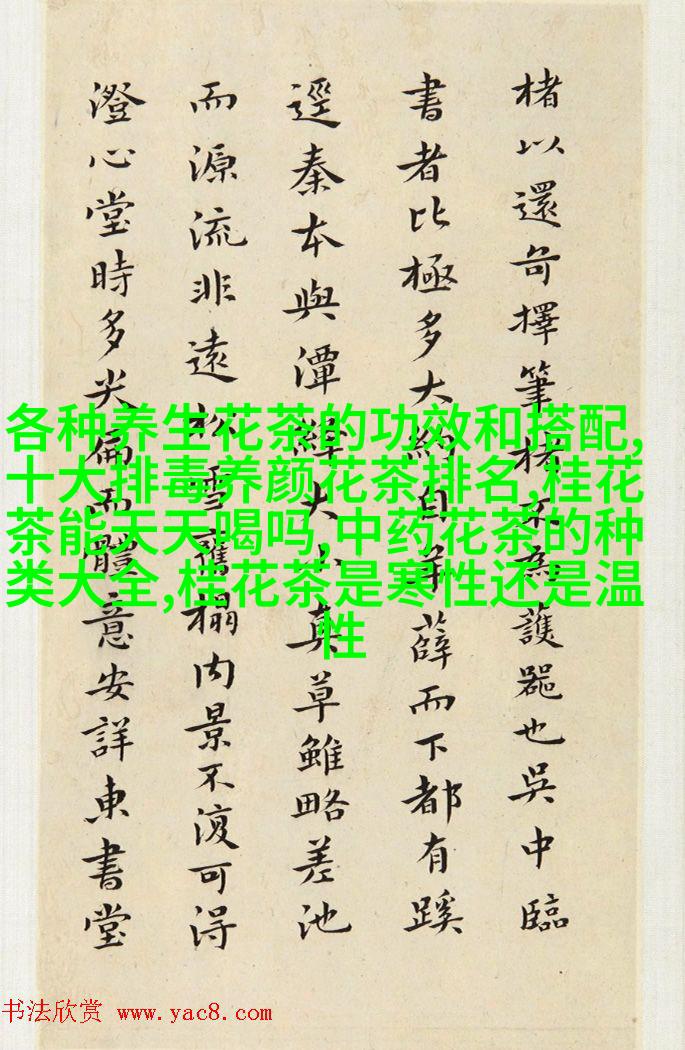 楮以還奇擇筆楮不為護噐也吳中臨
書者比極多大約自華薛而下都有蹊
逕秦本與潭絳大小真草雖略差池
而源流非遠松雪舊榻內景不復可得
澄心堂時多尖偏而體意安詳東書堂
各种养生花茶的功效和搭配,
十大排毒养颜花茶排名,桂花
茶能天天喝吗,中药花茶的种
类大全,桂花茶是寒性还是温
性
书法欣赏 www.yac8.com